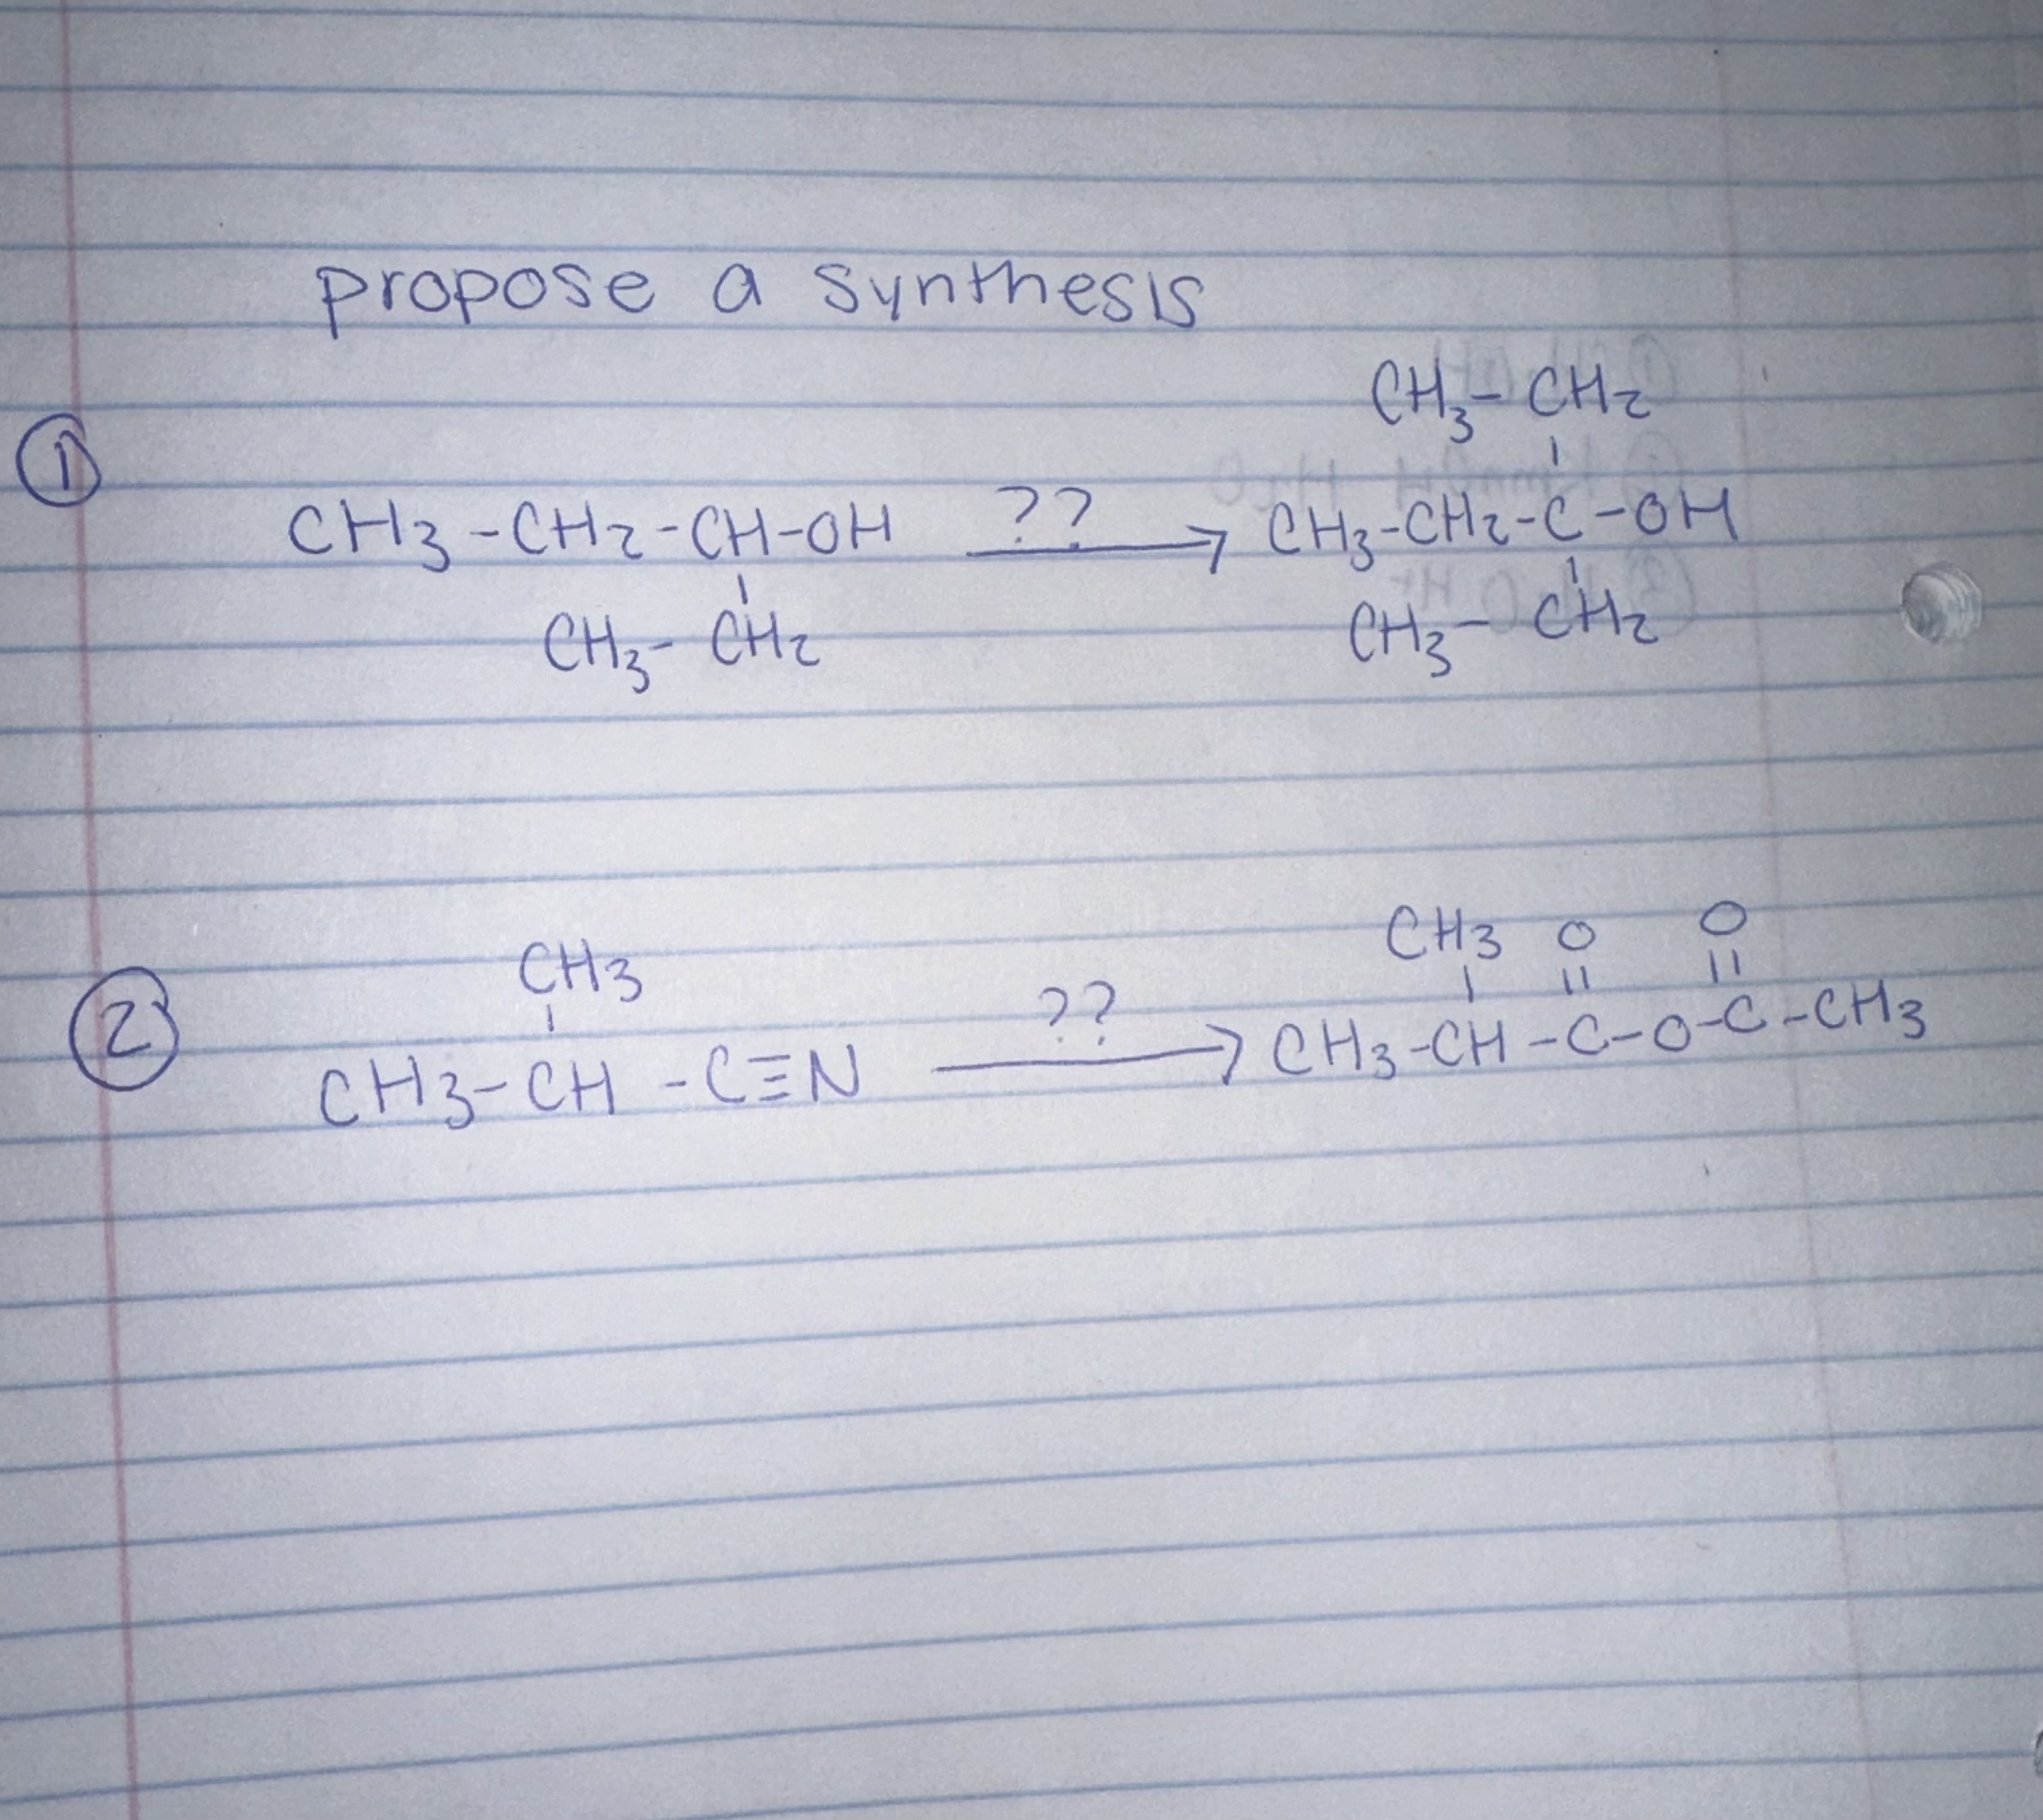 propose a synthesis
CH3-CH2
① CH3-CH2-CH-OH ??→ CH3-CH2-C-OH
CH3-CH2 CH3-CH2
CH3 CH3 O O
② CH3-CH-C≡N ??→ CH3-CH-C-O-C-CH3